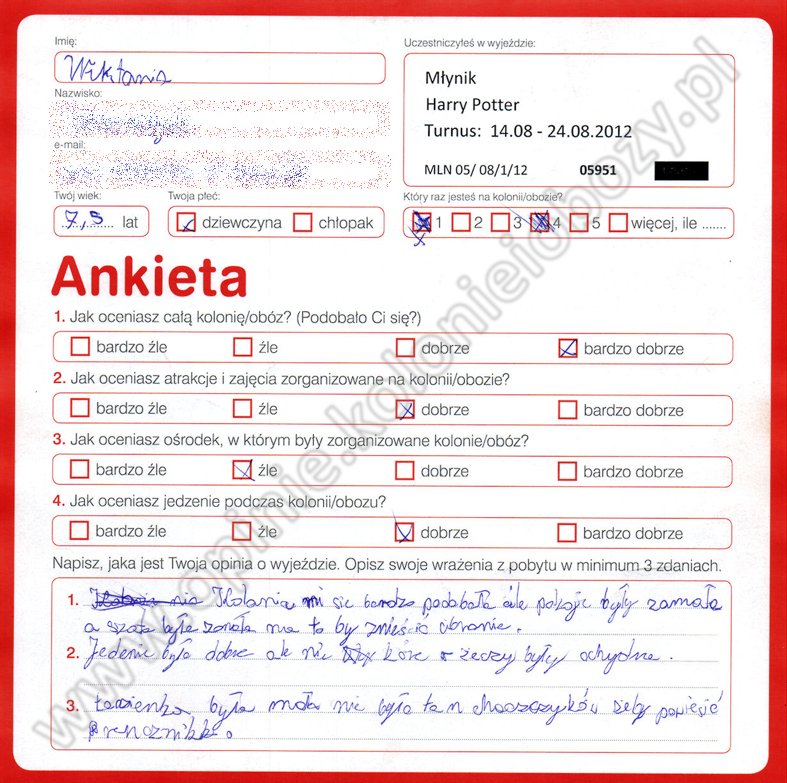 Imię:
Uczestniczyłeś w wyjeździe:
Wiktoria
Młynik
Harry Potter
Turnus: 14.08 - 24.08.2012
MLN 05/ 08/1/12 05951
Nazwisko:
e-mail:
Twój wiek:
Twoja płeć:
Który raz jesteś na kolonii/obozie?
7,5 lat
dziewczyna chłopak
1 2 3 4 5 więcej, ile .......
Ankieta
1. Jak oceniasz całą kolonię/obóz? (Podobało Ci się?)
bardzo źle źle dobrze bardzo dobrze
2. Jak oceniasz atrakcje i zajęcia zorganizowane na kolonii/obozie?
bardzo źle źle dobrze bardzo dobrze
3. Jak oceniasz ośrodek, w którym były zorganizowane kolonie/obóz?
bardzo źle źle dobrze bardzo dobrze
4. Jak oceniasz jedzenie podczas kolonii/obozu?
bardzo źle źle dobrze bardzo dobrze
Napisz, jaka jest Twoja opinia o wyjeździe. Opisz swoje wrażenia z pobytu w minimum 3 zdaniach.
1. Kolonia mi sie bardzo podobała ale pokoje były zamała
a szafa była zamała na to by zmieścić ubranie.
2. Jedenie było dobre ale nie które rzeczy były ochydne.
3. Łazienka była mała nie było tam haczyków żeby powiesić
ręcznik.
www.opinie.kolonieiobozy.pl